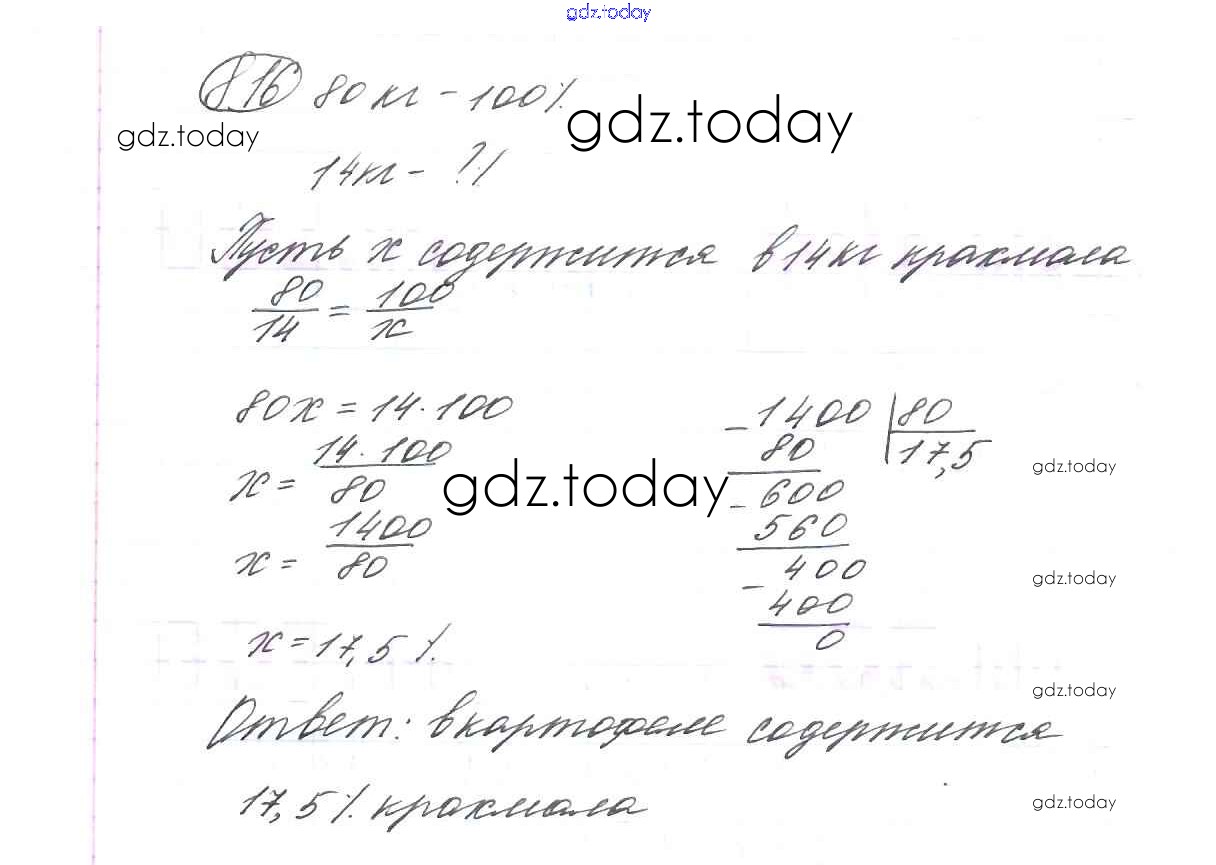 gdz.today
816 80 кг - 100%
gdz.today
gdz.today
14 кг - ?%
Пусть x содержится в 14 кг крахмала
80/14 = 100/x
80x = 14 · 100
x = 14 · 100/80
gdz.today
x = 1400/80
x = 17,5 %.
1400 | 80
17,5
- 80
- 600
560
- 400
400
0
gdz.today
gdz.today
gdz.today
Ответ: в картофеле содержится
17,5 % крахмала
gdz.today